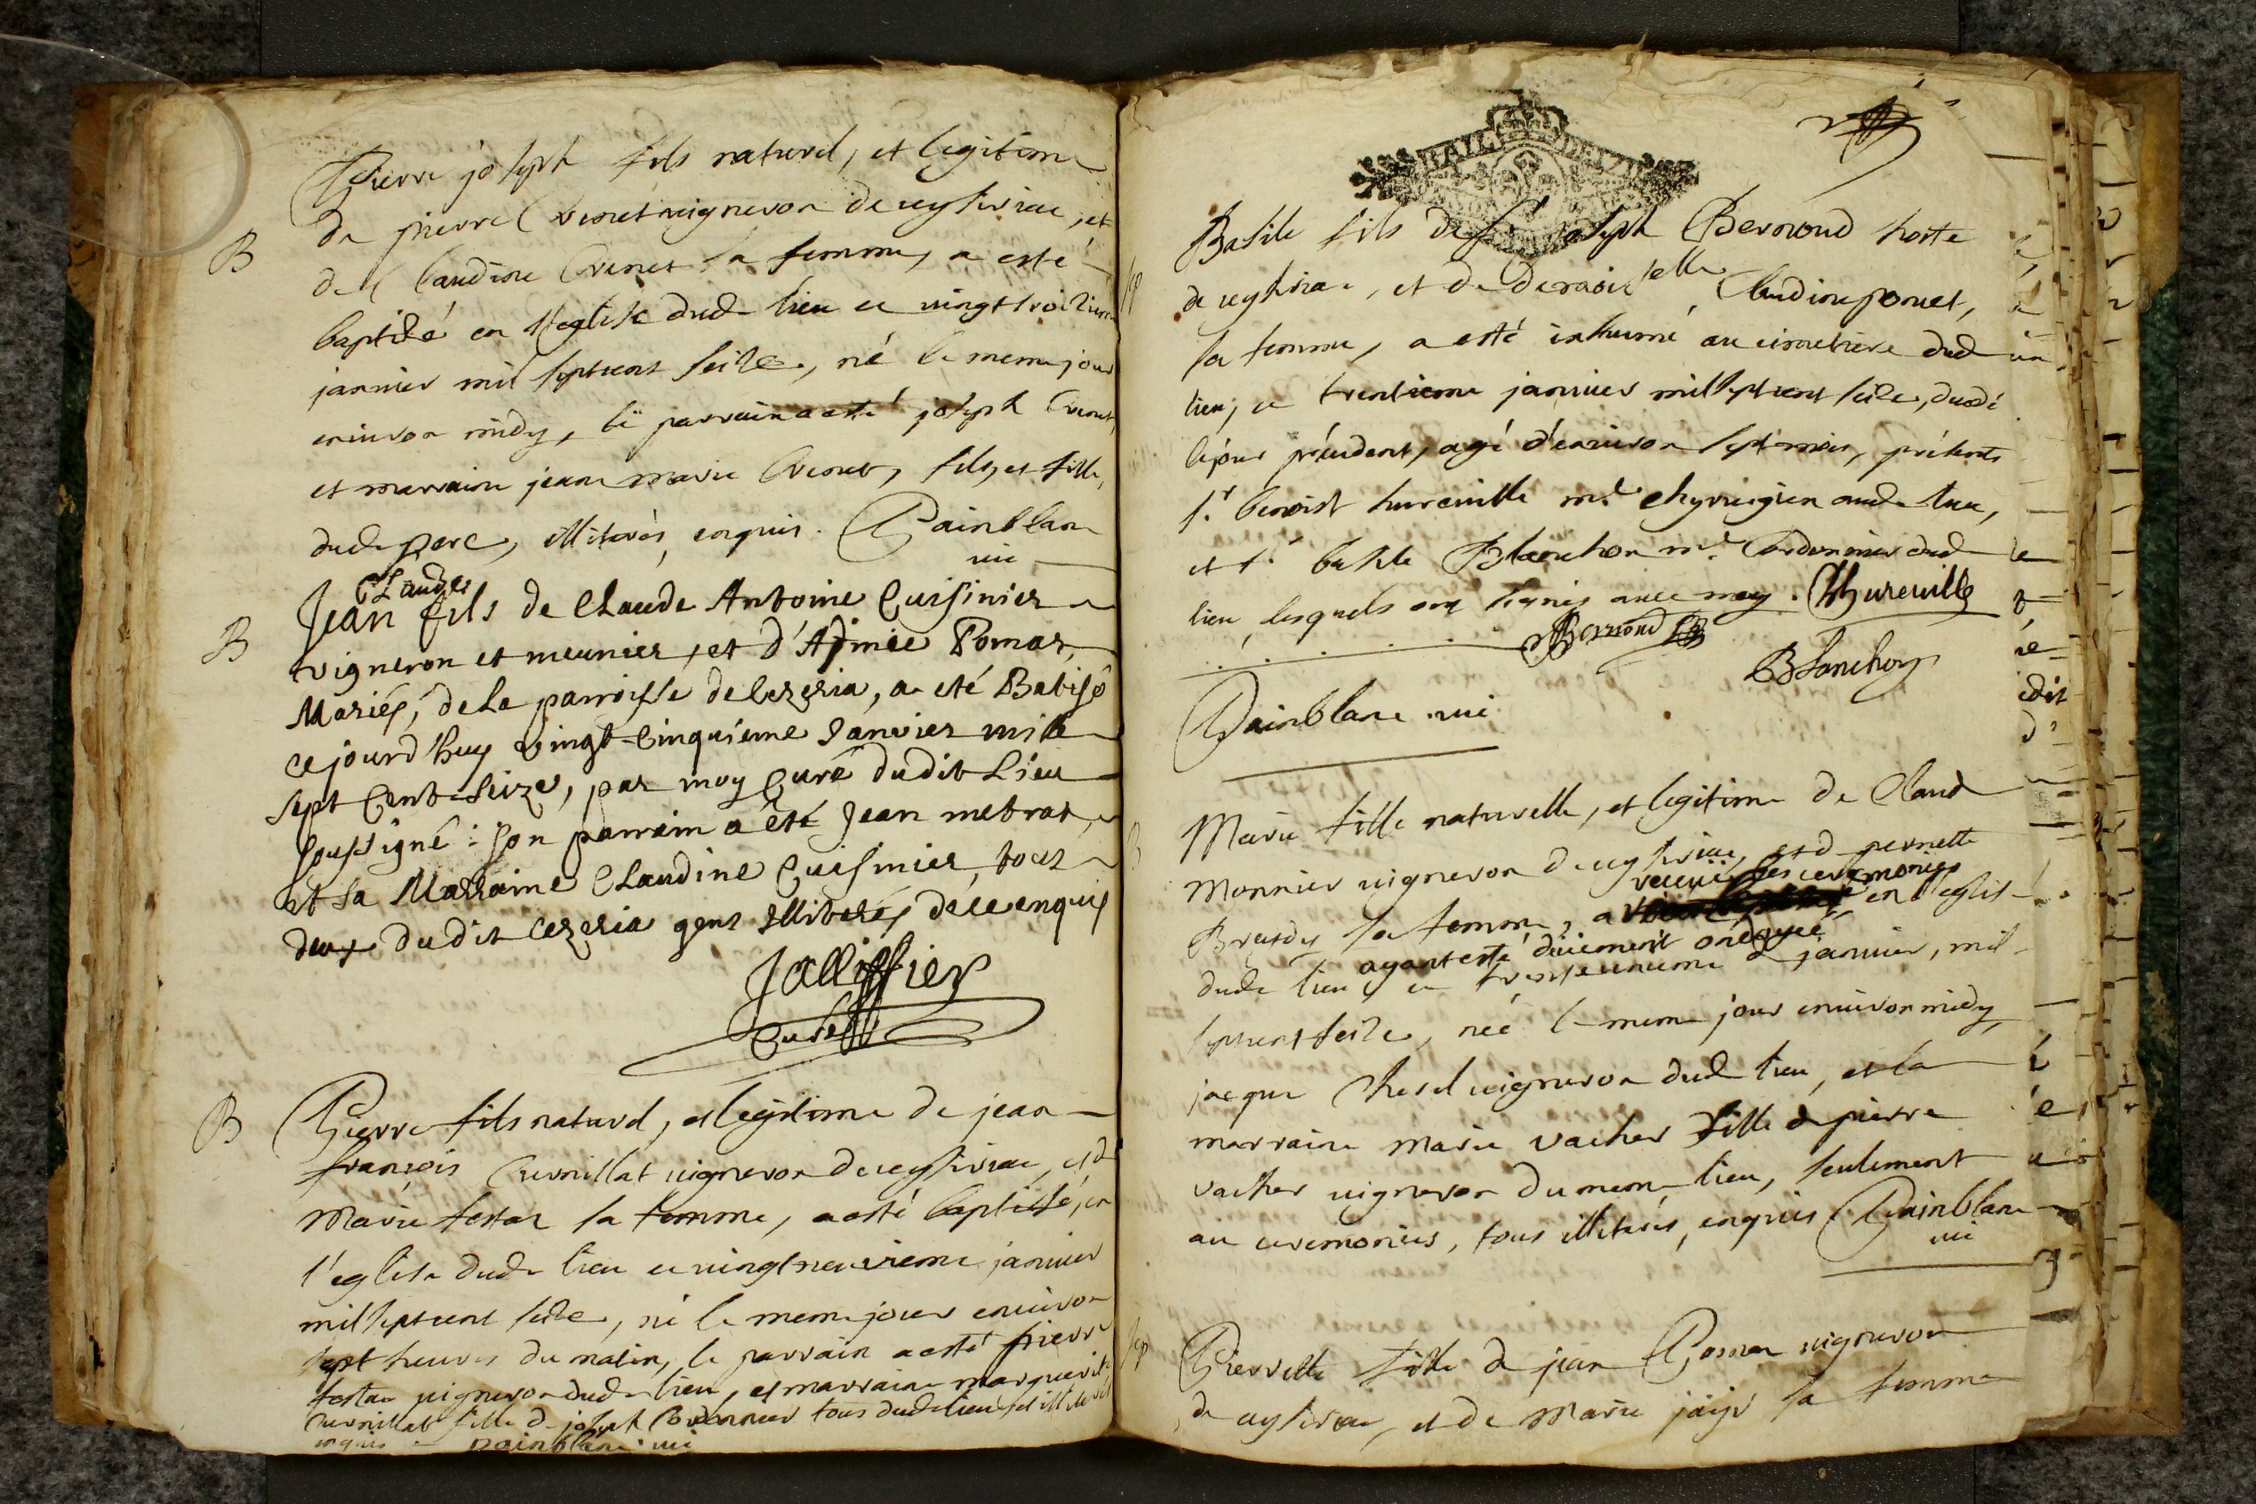 B
Pierre joseph fils naturel, et legitime
de pierre vigneron de ceyseriac, et
de Claudine sa femme, a esté
baptizé en l'eglise dud. lieu ce vingttroisieme
janvier mil septcent seize, né le meme jour
environ midy, le parrain a esté joseph
et marraine jeane marie, fils, et fille,
dud. pere, illiterés enquis. Painblanc
vic
Claude
B
Jean fils de Claude Antoine Cuisinier
vigneron et meunier, et d'Aimée Pomar,
Mariés, de la parroisse de Cezeria, a eté Batisé
cejourd'huy vingt-Cinquiéme Janvier mille
sept Cent-seize, par moy Curé dudit Lieu
soussigné: son parrain a été Jean mebrat,
et sa Marraine Claudine Cuisinier, tous
deux dudit Cezeria gens Illiterés de ce enquis
Jallissier
Curé
B
Pierre fils naturel, et legitime de jean
françois Curnillat vigneron de ceyseriac, et d
Marie testar sa femme, a esté baptissé, en
l'eglise dud. lieu ce vingtneuvieme janvier
mil septcent seize, né le meme jour environ
sept heures du matin, le parrain a esté pierre
testar vigneron dud. lieu, et marraine marguerite
Curnillat fille de joseph Cordonnier tous dud. lieu et illiterés
enquis painblanc vic
BAILL
Basile fils de Sr joseph Bernoud hoste
de ceyseriac, et de Demoiselle Claudine ponet,
sa femme, a esté inhumé au cimetiere dud
lieu, ce trentieme janvier mil septcent seize, decedé
le jour précedent, agé d'environ sept mois, présents
sr. benoist hureville md chyrurgien aud. lieu,
et sr. basile Blanchon md. Cordonnier dud
lieu, lesquels ont signés avec moy. Bhureville
Bernoud
Blanchon
Painblanc vic
Marie fille naturelle, et legitime de Claud
Monnier vigneron de ceyseriac, et d pernette
receüe les ceremonies
sa femme, a en l'eglise
ayant esté duement ondoyée
dud. lieu ce trenteunieme janvier, mil
septcent seize, née le meme jour environ midy,
jacque vigneron dud. lieu, et la
marraine marie vacher fille de pierre
vacher vigneron du meme lieu, seulement
au ceremonies, tous illiterés, enquis Painblanc
vic
Pierrette fille de jean vigneron
de ceyseriac, et de Marie sa femme